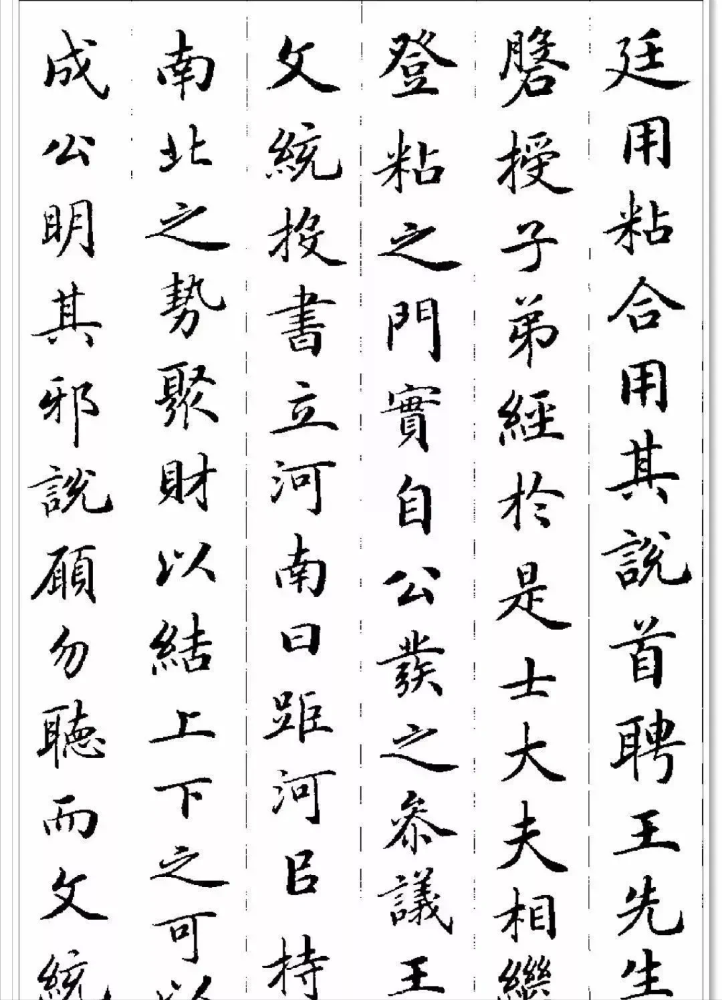 廷用粘合用其説首聘王先生
謄授子弟經於是士大夫相繼
登粘之門實自公發之參議王
文統投書立河南曰距河以持
南北之勢聚財以結上下之可以
成公明其邪説願勿聴而文統